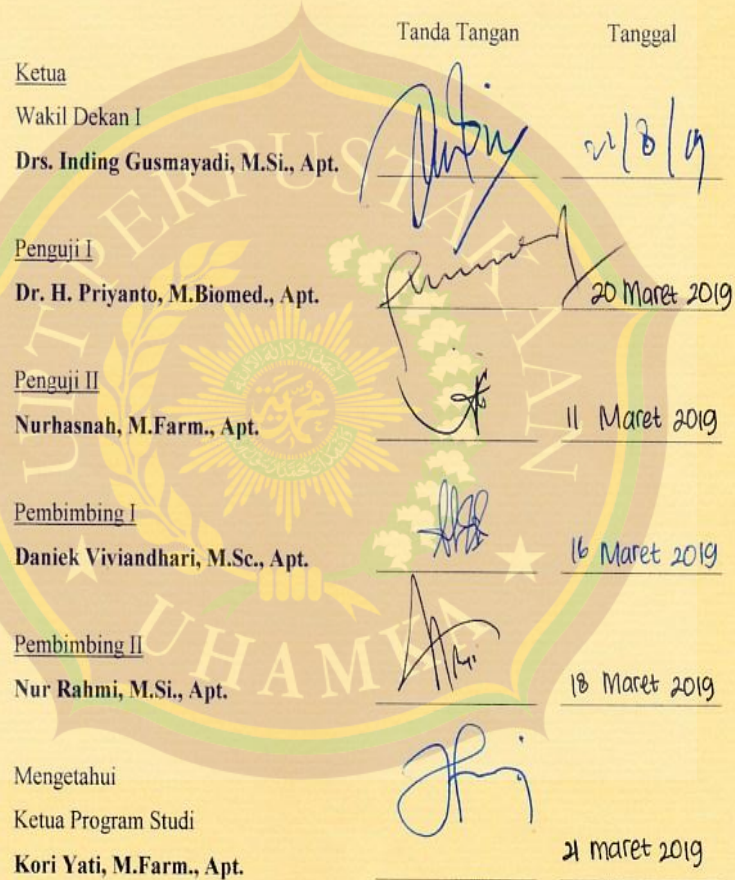 Tanda Tangan Tanggal
Ketua
Wakil Dekan I
Drs. Inding Gusmayadi, M.Si., Apt. /8/19
Penguji I
Dr. H. Priyanto, M.Biomed., Apt. 20 Maret 2019
Penguji II
Nurhasnah, M.Farm., Apt. 11 Maret 2019
Pembimbing I
Daniek Viviandhari, M.Sc., Apt. 16 Maret 2019
Pembimbing II
Nur Rahmi, M.Si., Apt. 18 Maret 2019
Mengetahui
Ketua Program Studi
Kori Yati, M.Farm., Apt. 21 maret 2019
UPT PERPUSTAKAAN
UHAMKA